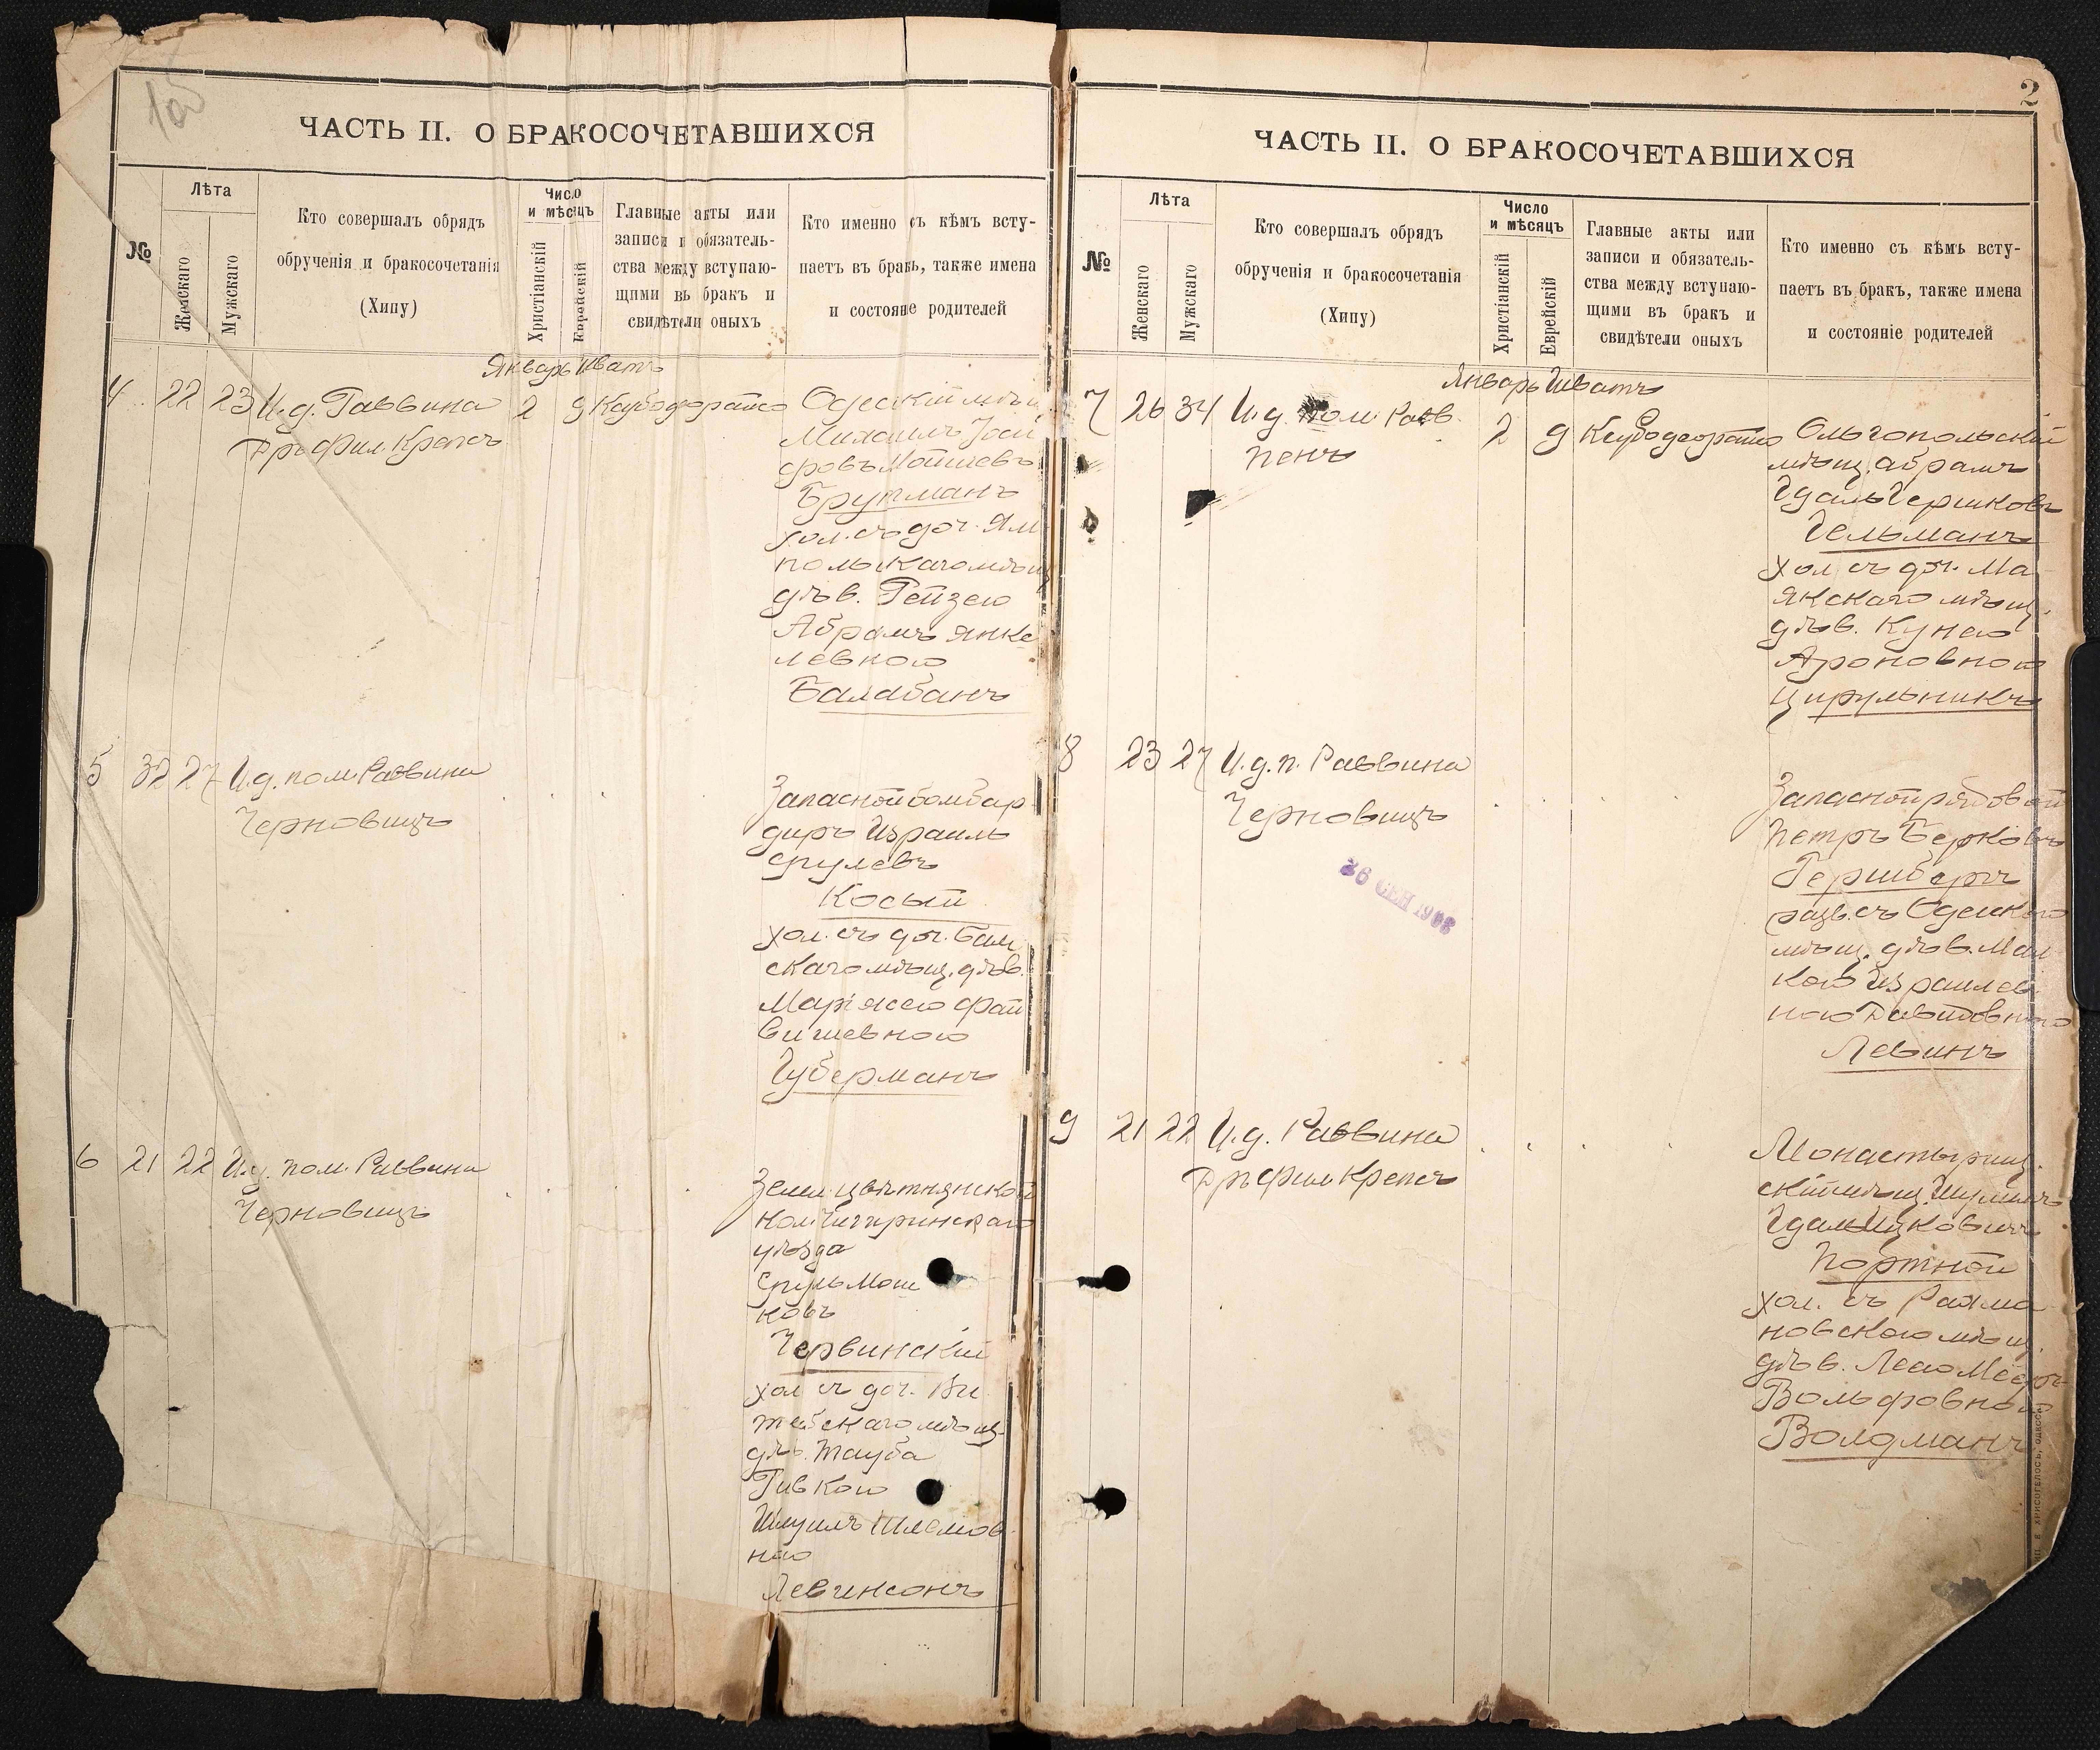 ЧАСТЬ II. О БРАКОСОЧЕТАВШИХСЯ
№
Лѣта
Женскаго
Мужскаго
Кто совершалъ обрядъ
обрученія и бракосочетанія
(Хипу)
Число
и мѣсяцъ
Христіанскій
Еврейскій
Главные акты или
записи и обязатель-
ства между вступаю-
щими въ бракъ и
свидѣтели оныхъ
Кто именно съ кѣмъ всту-
паетъ въ бракъ, также имена
и состояніе родителей
Январь Шватъ
4 22 23 И.д. Раввина 2 9
Дръ Фил. Крепсъ
Одесскій мѣщ.
Михаилъ Іосі
фовъ Мошневъ
Брутманъ
хол. съ доч. Ям
польскаго мѣщ
дѣв. Рейзею
Абрамъ Янке
левною
Балабанъ
5 32 27 И.д. пом. Раввина
Черновицъ
Запасной бомбар
диръ Израиль
Срулевъ
Косый
хол. съ доч. Балт
скаго мѣщ. дѣв.
Маріясею Фай
вишевною
Губерманъ
6 21 22 И.д. пом. Раввина
Черновицъ
Земл. Цвѣтнянской
кол. Чигиринскаго
уѣзда
Сруль Мош
ковъ
Червинскій
хол съ доч. Ви
тебскаго мѣщ.
дѣв. Тауба
Ривкою
Шмуилъ Шлемов
ною
Левинсонъ
2
ЧАСТЬ II. О БРАКОСОЧЕТАВШИХСЯ
№
Лѣта
Женскаго
Мужскаго
Кто совершалъ обрядъ
обрученія и бракосочетанія
(Хипу)
Число
и мѣсяцъ
Христіанскій
Еврейскій
Главные акты или
записи и обязатель-
ства между вступаю-
щими въ бракъ и
свидѣтели оныхъ
Кто именно съ кѣмъ всту-
паетъ въ бракъ, также имена
и состояніе родителей
Январь Шватъ
7 26 34 И.д. пом. Равв. 2 9
Пенъ
Ольгопольскій
мѣщ. Абрамъ
Гдаль Гершковъ
Гельманъ
хол съ доч. Ма
якскаго мѣщ.
дѣв. Кунею
Ароновною
Цирульникъ
8 23 27 И.д. п. Раввина
Черновицъ
Запасной рядовой
Петръ Берковъ
Гершбергъ
разв. съ Одесскою
мѣщ. дѣв. Мал
кою Израилев
ною Давидовною
Левинъ
26 СЕН 1908
9 21 22 И.д. Раввина
Дръ Фил Крепсъ
Монастырищ
скій мѣщ. Шумилъ
Гдаль Ицковичъ
Портной
хол. съ Рашма
новскою мѣщ.
дѣв. Леею
Вольфовною
Волдманъ